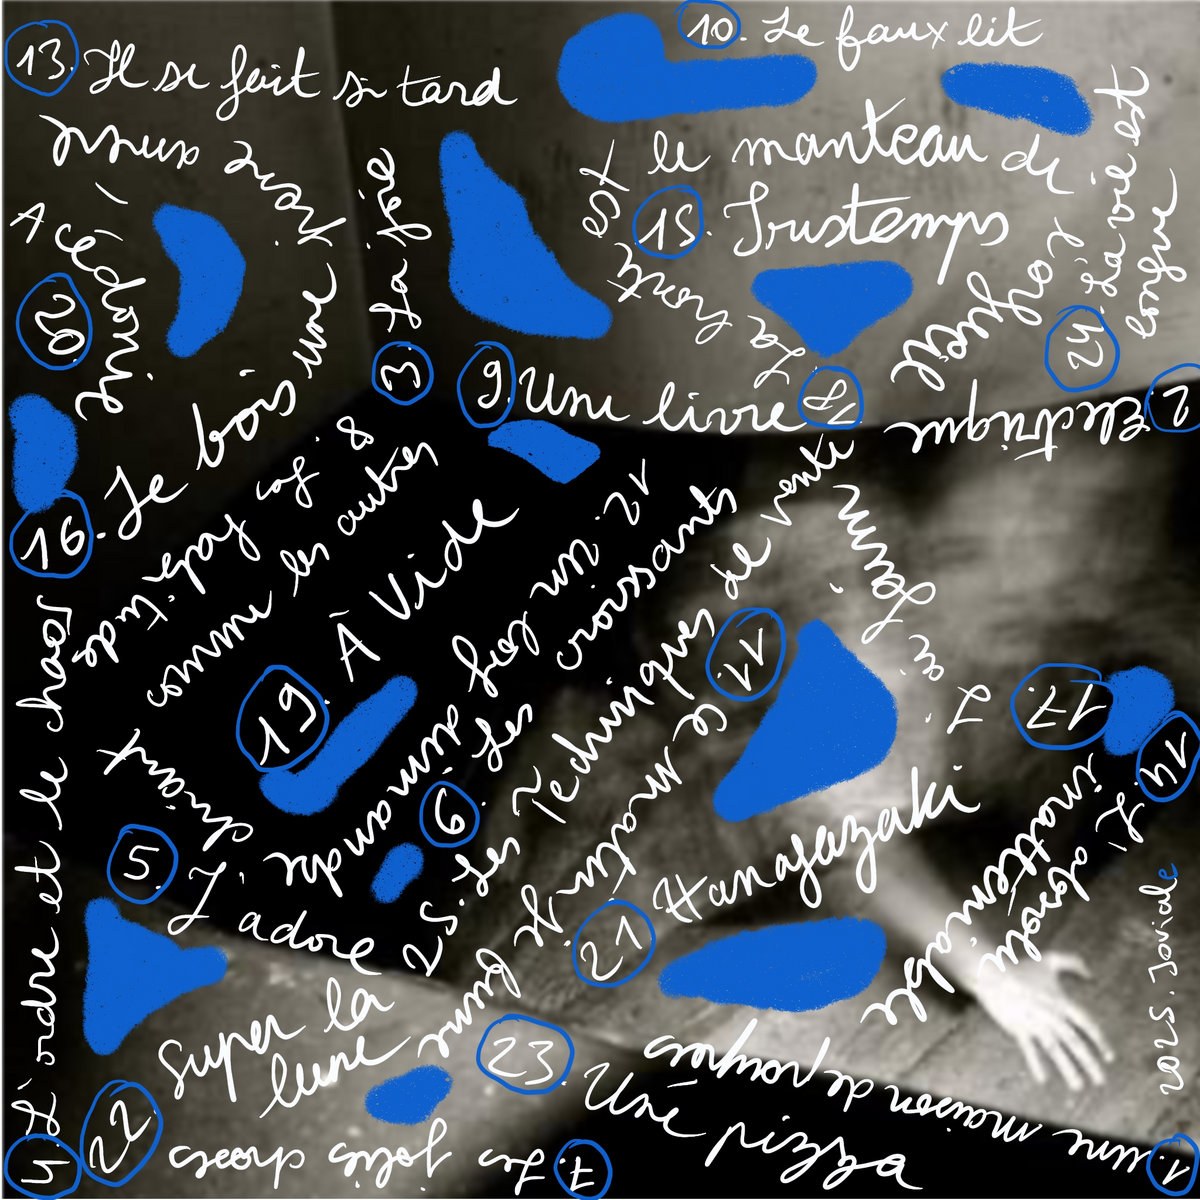 13. Il se fait si tard
10. Le faux lit
15. Printemps
24. La vie est
longue
3. La joie
18. La honte est le manteau de l'orgueil
9. Une livre
2. Électrique
20.
16. Je bois une
8.
comme les autres
19. À Vide
12. un long dimanche
6. Les croissants
25. Les Techniques de vente
11. Ce matin, je fume
17. J'ai faim
14. L'absolu
5. J'adore
21.
4. L'ordre et le chaos
22. Super la
lune
23. Une pizza
7. Les jolis choses
1. une maison de poupées
2025. Joviale